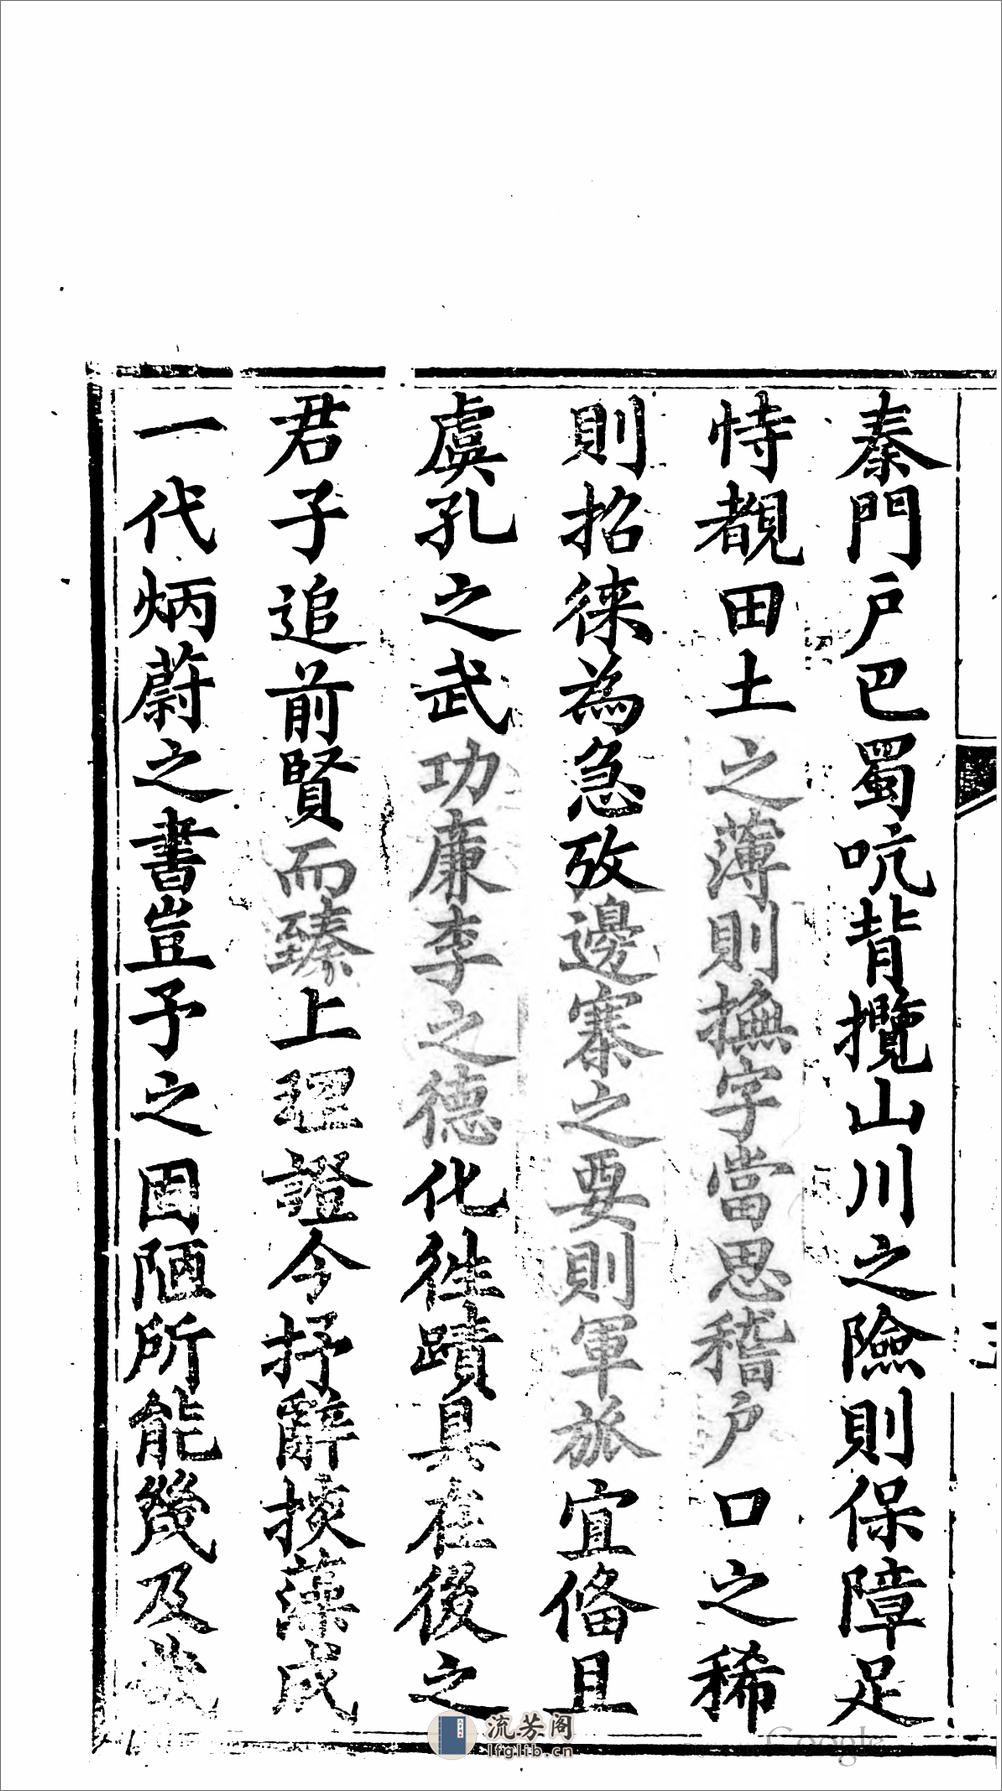 秦門戶巴蜀吭背攬山川之險則保障足
恃覩田土之薄則撫字當思稽户口之稀
則招徠為急攷邊寨之要則軍旅宜俻且
虞孔之武功廉李之德化徃蹟具在後之
君子追前賢而臻上理證今抒辭掞藻成
一代炳蔚之書豈予之固陋所能幾及哉
流芳阁
lfglib.cn
Google